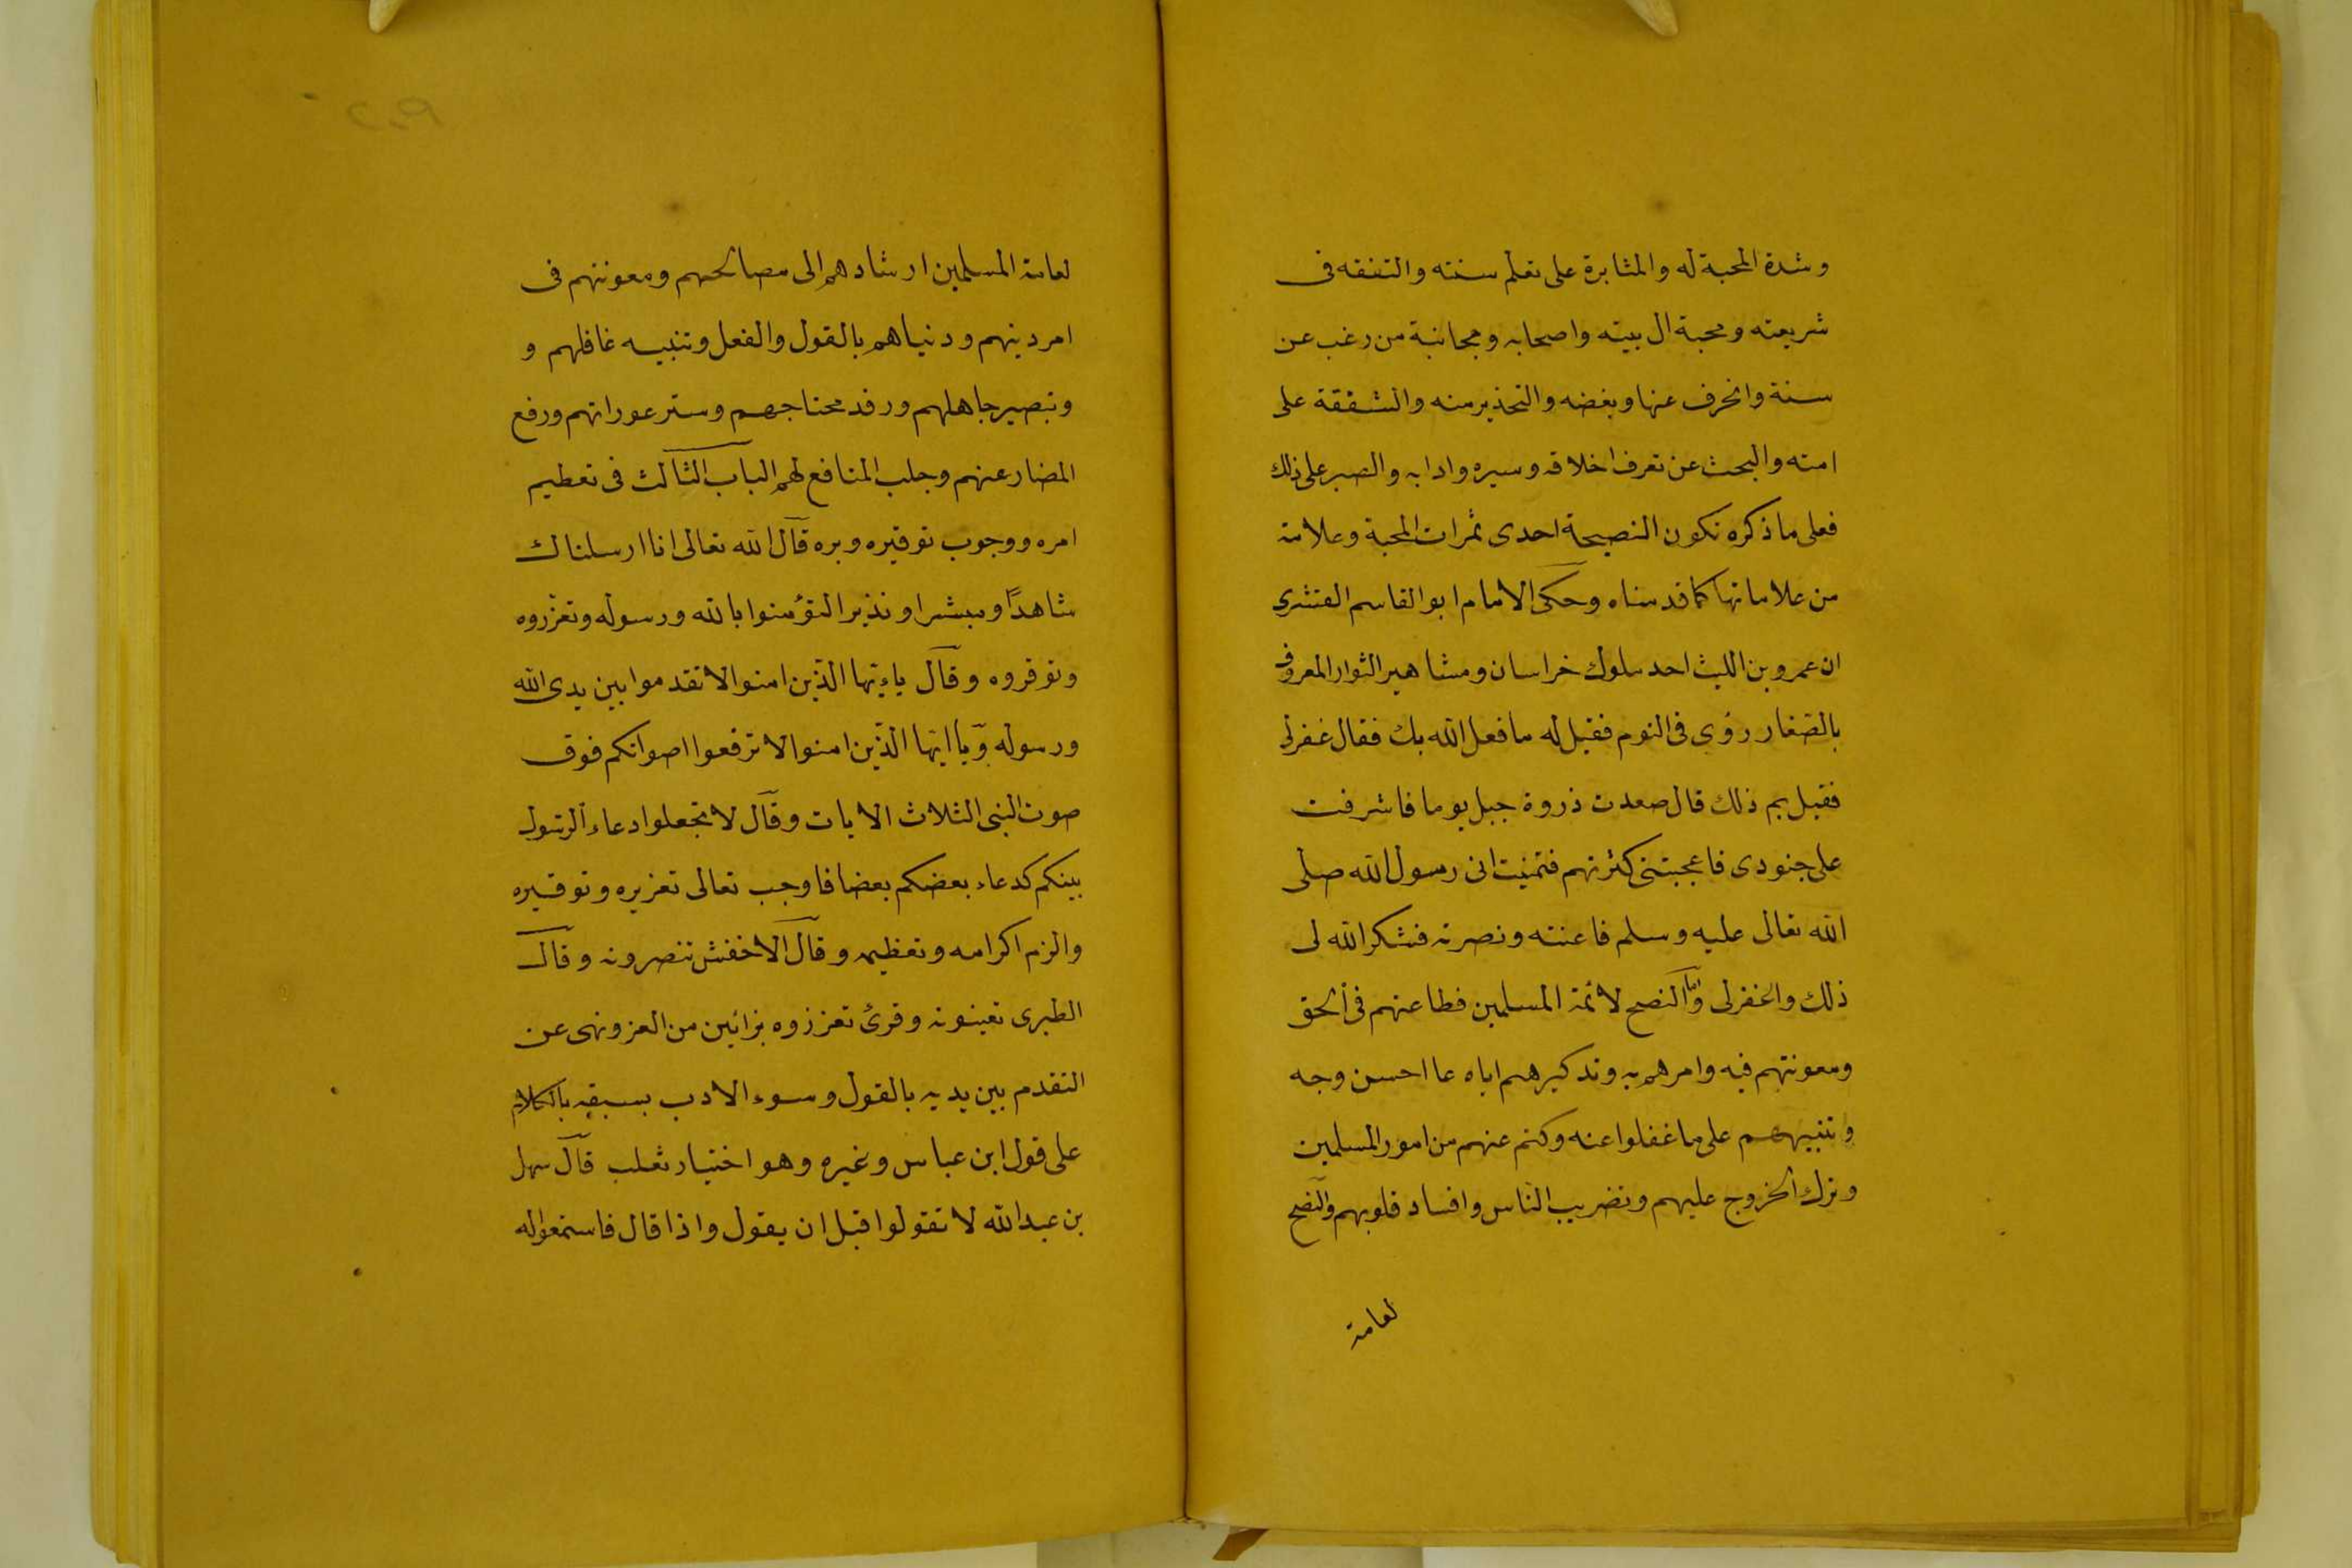 وشدة المحبة له والمثابرة على تعلم سنته والتفقه فى
شريعته ومحبة ال بيته واصحابه ومجانبة من رغب عن
سنة وانحرف عنها وبغضه والتحذير منه والشفقة على
امته والبحث عن تعرف اخلاقه وسيره وادابه والصبر على ذلك
فعلى ما ذكره تكون النصيحة احدى ثمرات المحبة وعلامة
من علاماتها كما قدمناه وحكى الامام ابو القاسم القشيرى
ان عمرو بن الليث احد ملوك خراسان ومشاهير الثوار المعروف
بالصفار رؤى فى النوم فقيل له ما فعل الله بك فقال غفرلى
فقيل بم ذلك قال صعدت ذروة جبل يوما فاشرفت
على جنودى فاعجبتنى كثرتهم فتمنيت انى رسول الله صلى
الله تعالى عليه وسلم فاعنته ونصرته فشكر الله لى
ذلك واغفرلى وامّا النصح لائمة المسلمين فطاعتهم فى الحق
ومعونتهم فيه وامرهم به وتذكيرهم اياه عا احسن وجه
وتنبيههم على ما غفلوا عنه وكتم عنهم من امور المسلمين
وترك الخروج عليهم وتضريب الناس وافساد قلوبهم والنصح
لعامة
لعامة المسلمين ارشادهم الى مصالحهم ومعونتهم فى
امر دينهم ودنياهم بالقول والفعل وتنبيه غافلهم و
وتبصير جاهلهم ورفد محتاجهم وستر عوراتهم ورفع
المضار عنهم وجلب المنافع لهم الباب الثالث فى تعظيم
امره ووجوب توقيره وبره قال الله تعالى انا ارسلناك
شاهدًا ومبشرا ونذيرا لتؤمنوا بالله ورسوله وتعزروه
وتوقروه وقال ياءيّها الذين امنوا لا تقدموا بين يدى الله
ورسوله ويا ايها الذين امنوا لا ترفعوا اصواتكم فوق
صوت النبى الثلاث الايات وقال لا تجعلوا دعاء الرسول
بينكم كدعاء بعضكم بعضا فاوجب تعالى تعزيره وتوقيره
والزم اكرامه وتعظيمه وقال الاخفش تنصرونه وقال
الطبرى تعينونه وقرئ تعززوه بزائين من العز ونهى عن
التقدم بين يديه بالقول وسوء الادب بسبقه بالكلام
على قول ابن عباس وغيره وهو اختيار ثعلب قال سهل
بن عبد الله لا تقولوا قبل ان يقول واذا قال فاستمعوا له